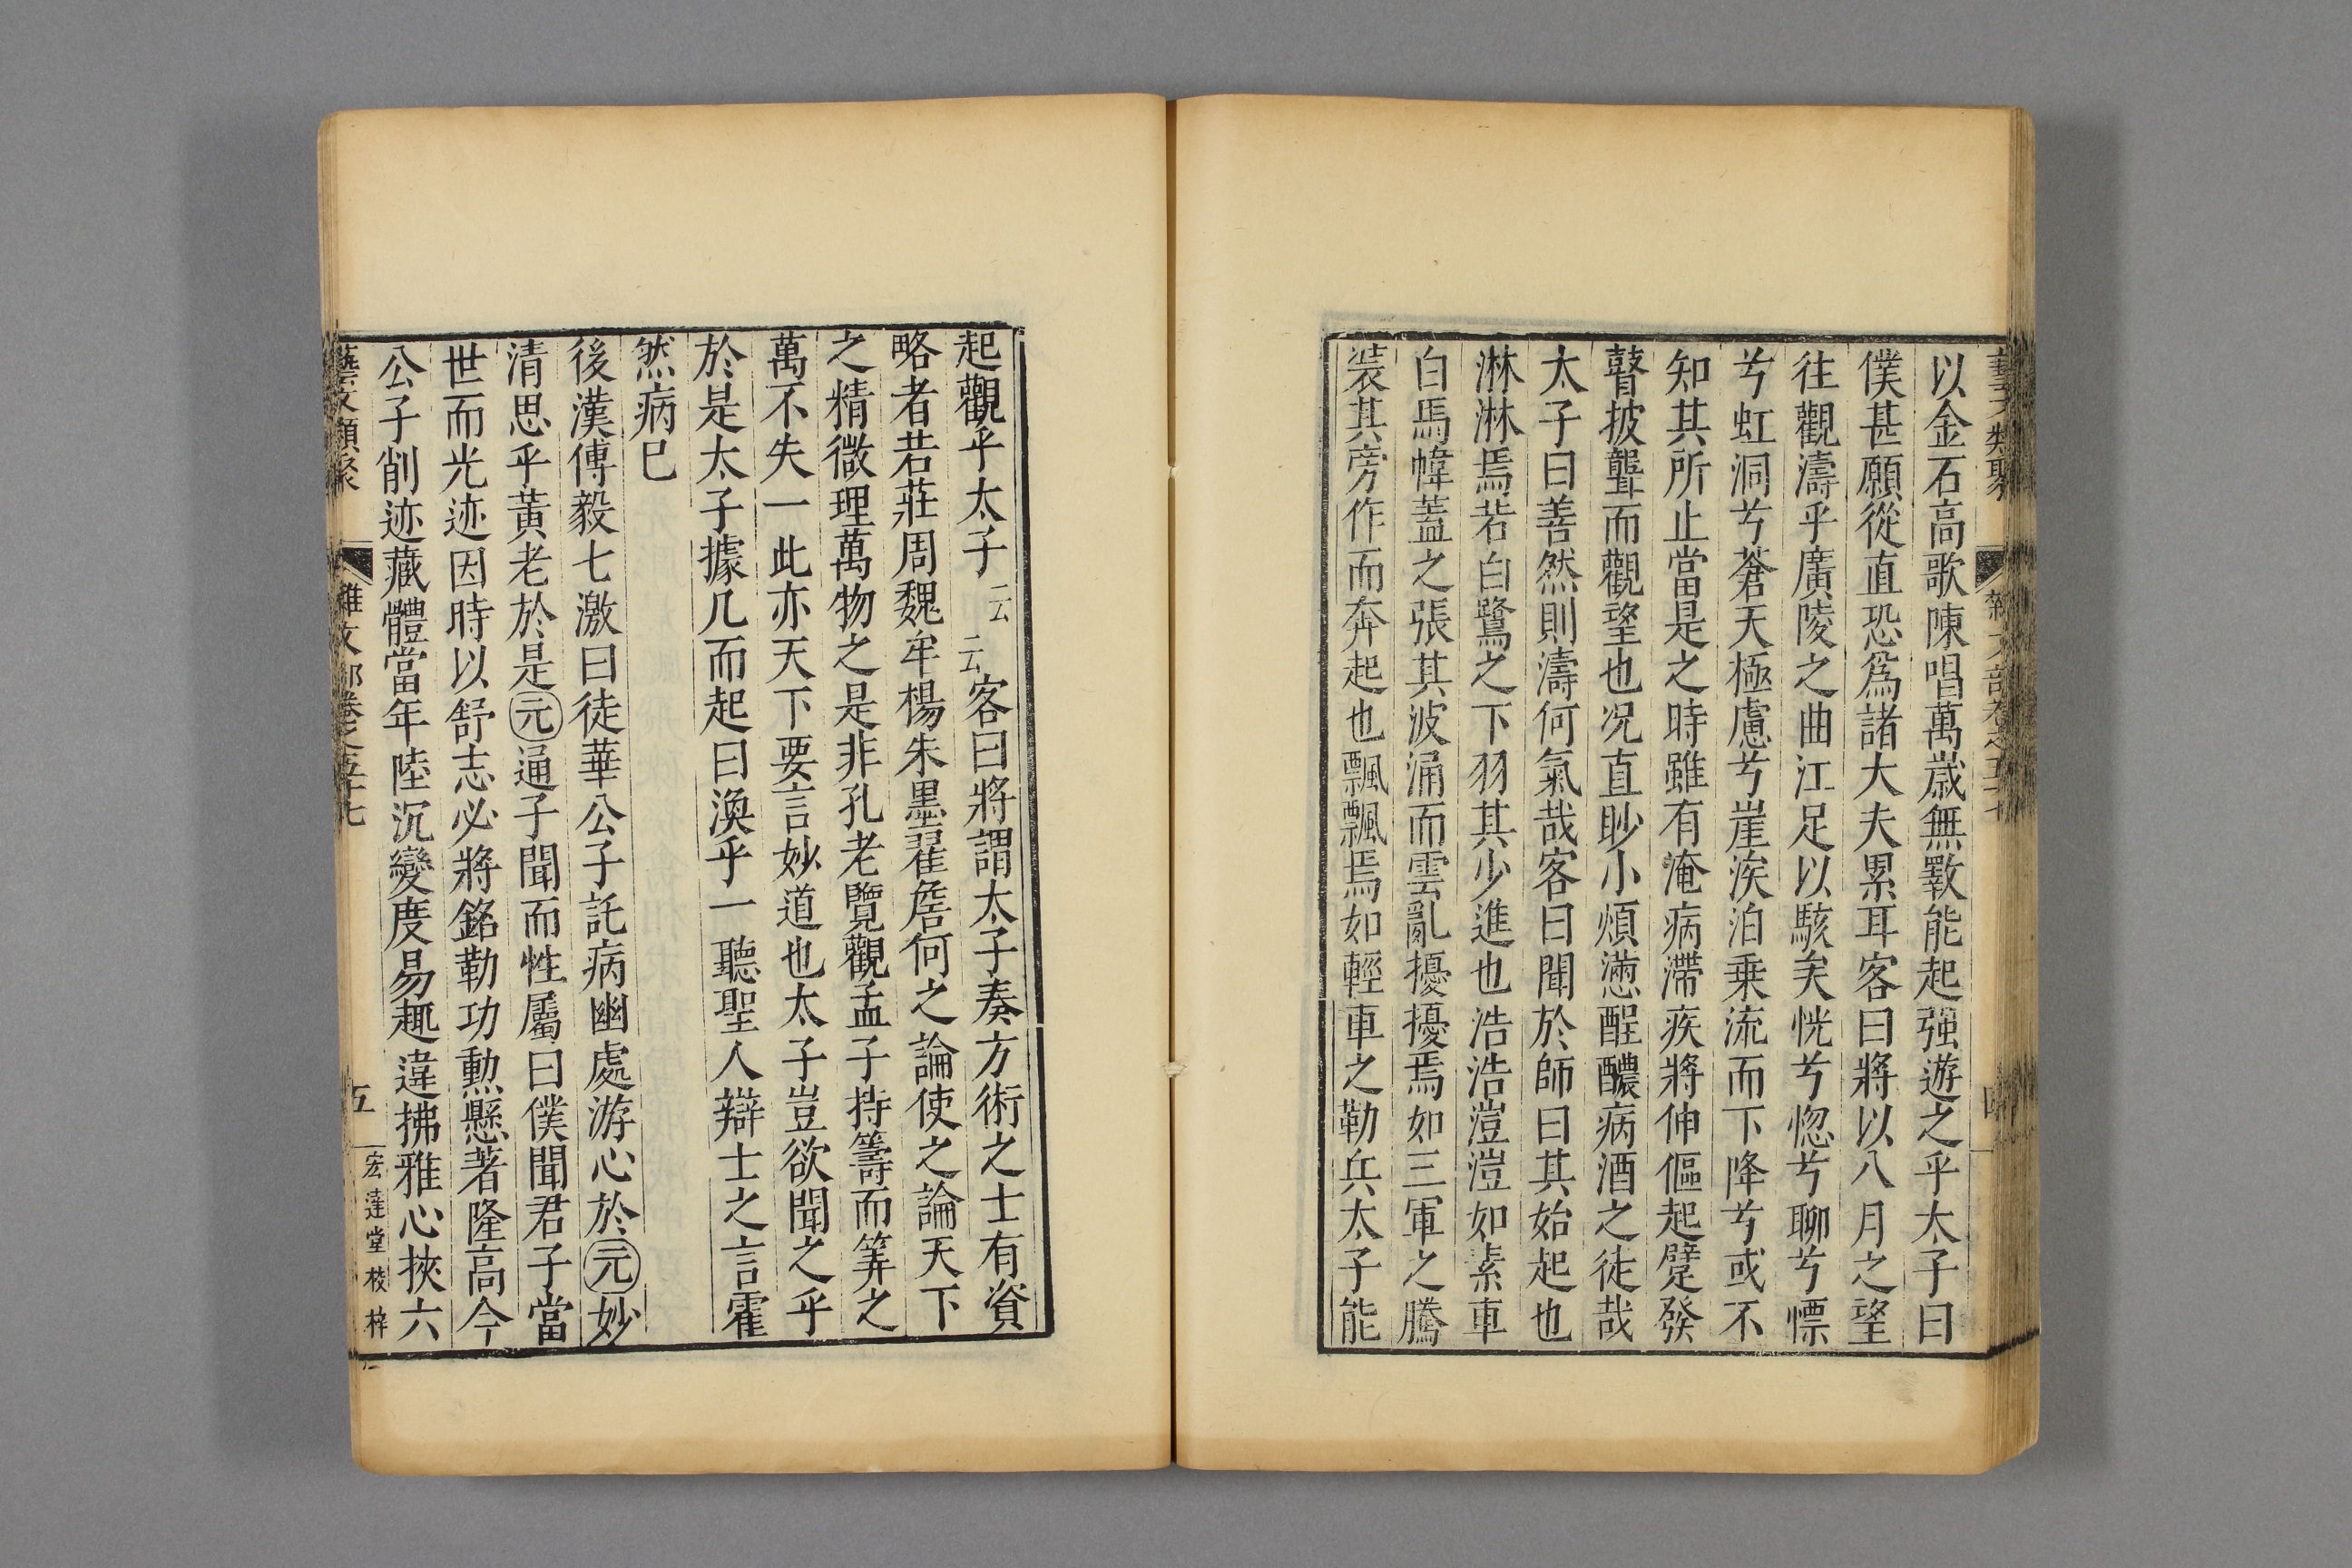 以金石高歌陳唱萬歲無斁能起强遊之乎太子曰
僕甚願從直恐爲諸大夫累耳客曰將以八月之望
往觀濤乎廣陵之曲江足以駭矣恍兮惚兮聊兮慓
兮虹洞兮蒼天極慮兮崖涘泊乗流而下降兮或不
知其所止當是之時雖有淹病滯疾將伸傴起躄發
瞽披聾而觀望也况直眇小煩懣酲醲病酒之徒哉
太子曰善然則濤何氣哉客曰聞於師曰其始起也
淋淋焉若白鷺之下羽其少進也浩浩溰溰如素車
白馬幃蓋之張其波涌而雲亂擾擾焉如三軍之騰
裝其旁作而奔起也飄飄焉如輕車之勒兵太子能
起觀乎太子云云客曰將謂太子奏方術之士有資
略者若莊周魏牟楊朱墨翟詹何之論使之論天下
之精微理萬物之是非孔老覽觀孟子持籌而筭之
萬不失一此亦天下要言妙道也太子豈欲聞之乎
於是太子據几而起曰渙乎一聽聖人辯士之言霍
然病巳
後漢傅毅七激曰徒華公子託病幽處游心於元妙
清思乎黃老於是元通子聞而性屬曰僕聞君子當
世而光迹因時以舒志必將銘勒功勲懸著隆高今
公子削迹藏體當年陸沉變度易趣違拂雅心挾六
藝文類聚 雜文部卷之五十七 五 宏達堂校梓